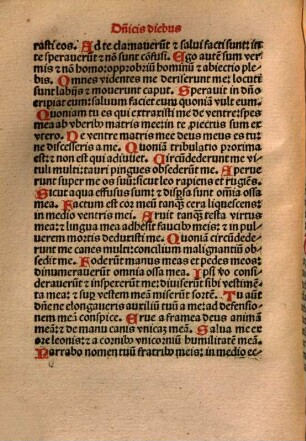 Dñicis diebus
rasti eos. Ad te clamauerūt ⁊ salui facti sunt: in
te sperauerūt ⁊ nō sunt cōfusi. Ego autē sum ver
mis ⁊ nō homo: opprobriū hominū ⁊ abiectio ple
bis. Omnes videntes me deriserunt me: locuti
sunt labijs ⁊ mouerunt caput. Sperauit in dño
eripiat eum: saluum faciet eum quoniā vult eum.
Quoniam tu es qui extraxisti me de ventre: spes
mea ab vberib̄ matris mee: in te piectus sum ex
vtero. De ventre matris mee deus meus es tu:
ne discesseris a me. Quoniā tribulatio proxima
est: ⁊ non est qui adiuuet. Circūdederunt me vi
tuli multi: tauri pingues obsederūt me. Aperue
runt super me os suū: sicut leo rapiens ⁊ rugiēs.
Sicut aqua effusus sum: ⁊ dispsa sunt omīa ossa
mea. Factum est cor meū tanq̄ cera liquescens:
in medio ventris mei. Aruit tanq̄ testa virtus
mea: ⁊ lingua mea adhesit faucib̄ meis: ⁊ in pul
uerem mortis deduxisti me. Quoniā circūdede
runt me canes multi: concilium malignantiū ob
sedit me. Foderūt manus meas ⁊ pedes meos:
dinumerauerūt omnia ossa mea. Ipsi ṽo consi
derauerūt ⁊ inspexerūt me: diuiserūt sibi vestimē
ta mea: ⁊ sup̄ vestem meā miserūt sortē. Tu aūt
dñe ne elongaueris auxiliū tuū a me: ad defensio
nem meā conspice. Erue a framea deus animā
meā: ⁊ de manu canis vnicaʒ meā. Salua me ex
ore leonis: ⁊ a cornib̄ vnicorniū humilitatē meā.
Narrabo nomen tuū fratrib̄ meis: in medio ec-